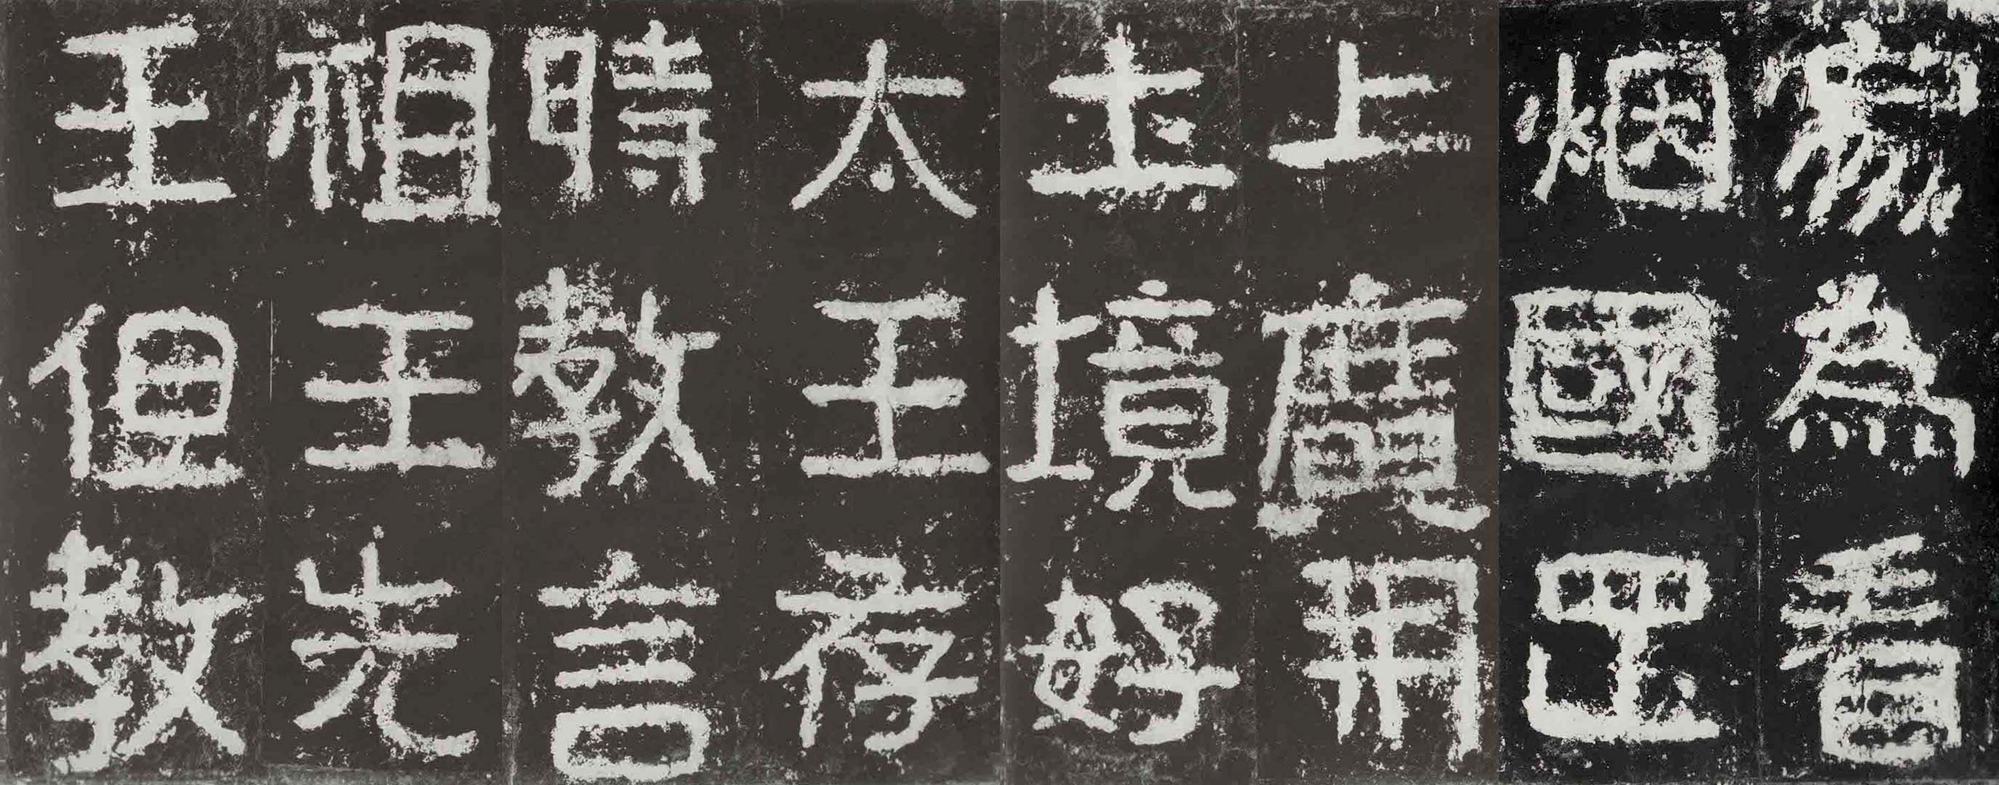 家為看
烟國罡
上廣開
土境好
太王存
時教言
祖王先
王但教